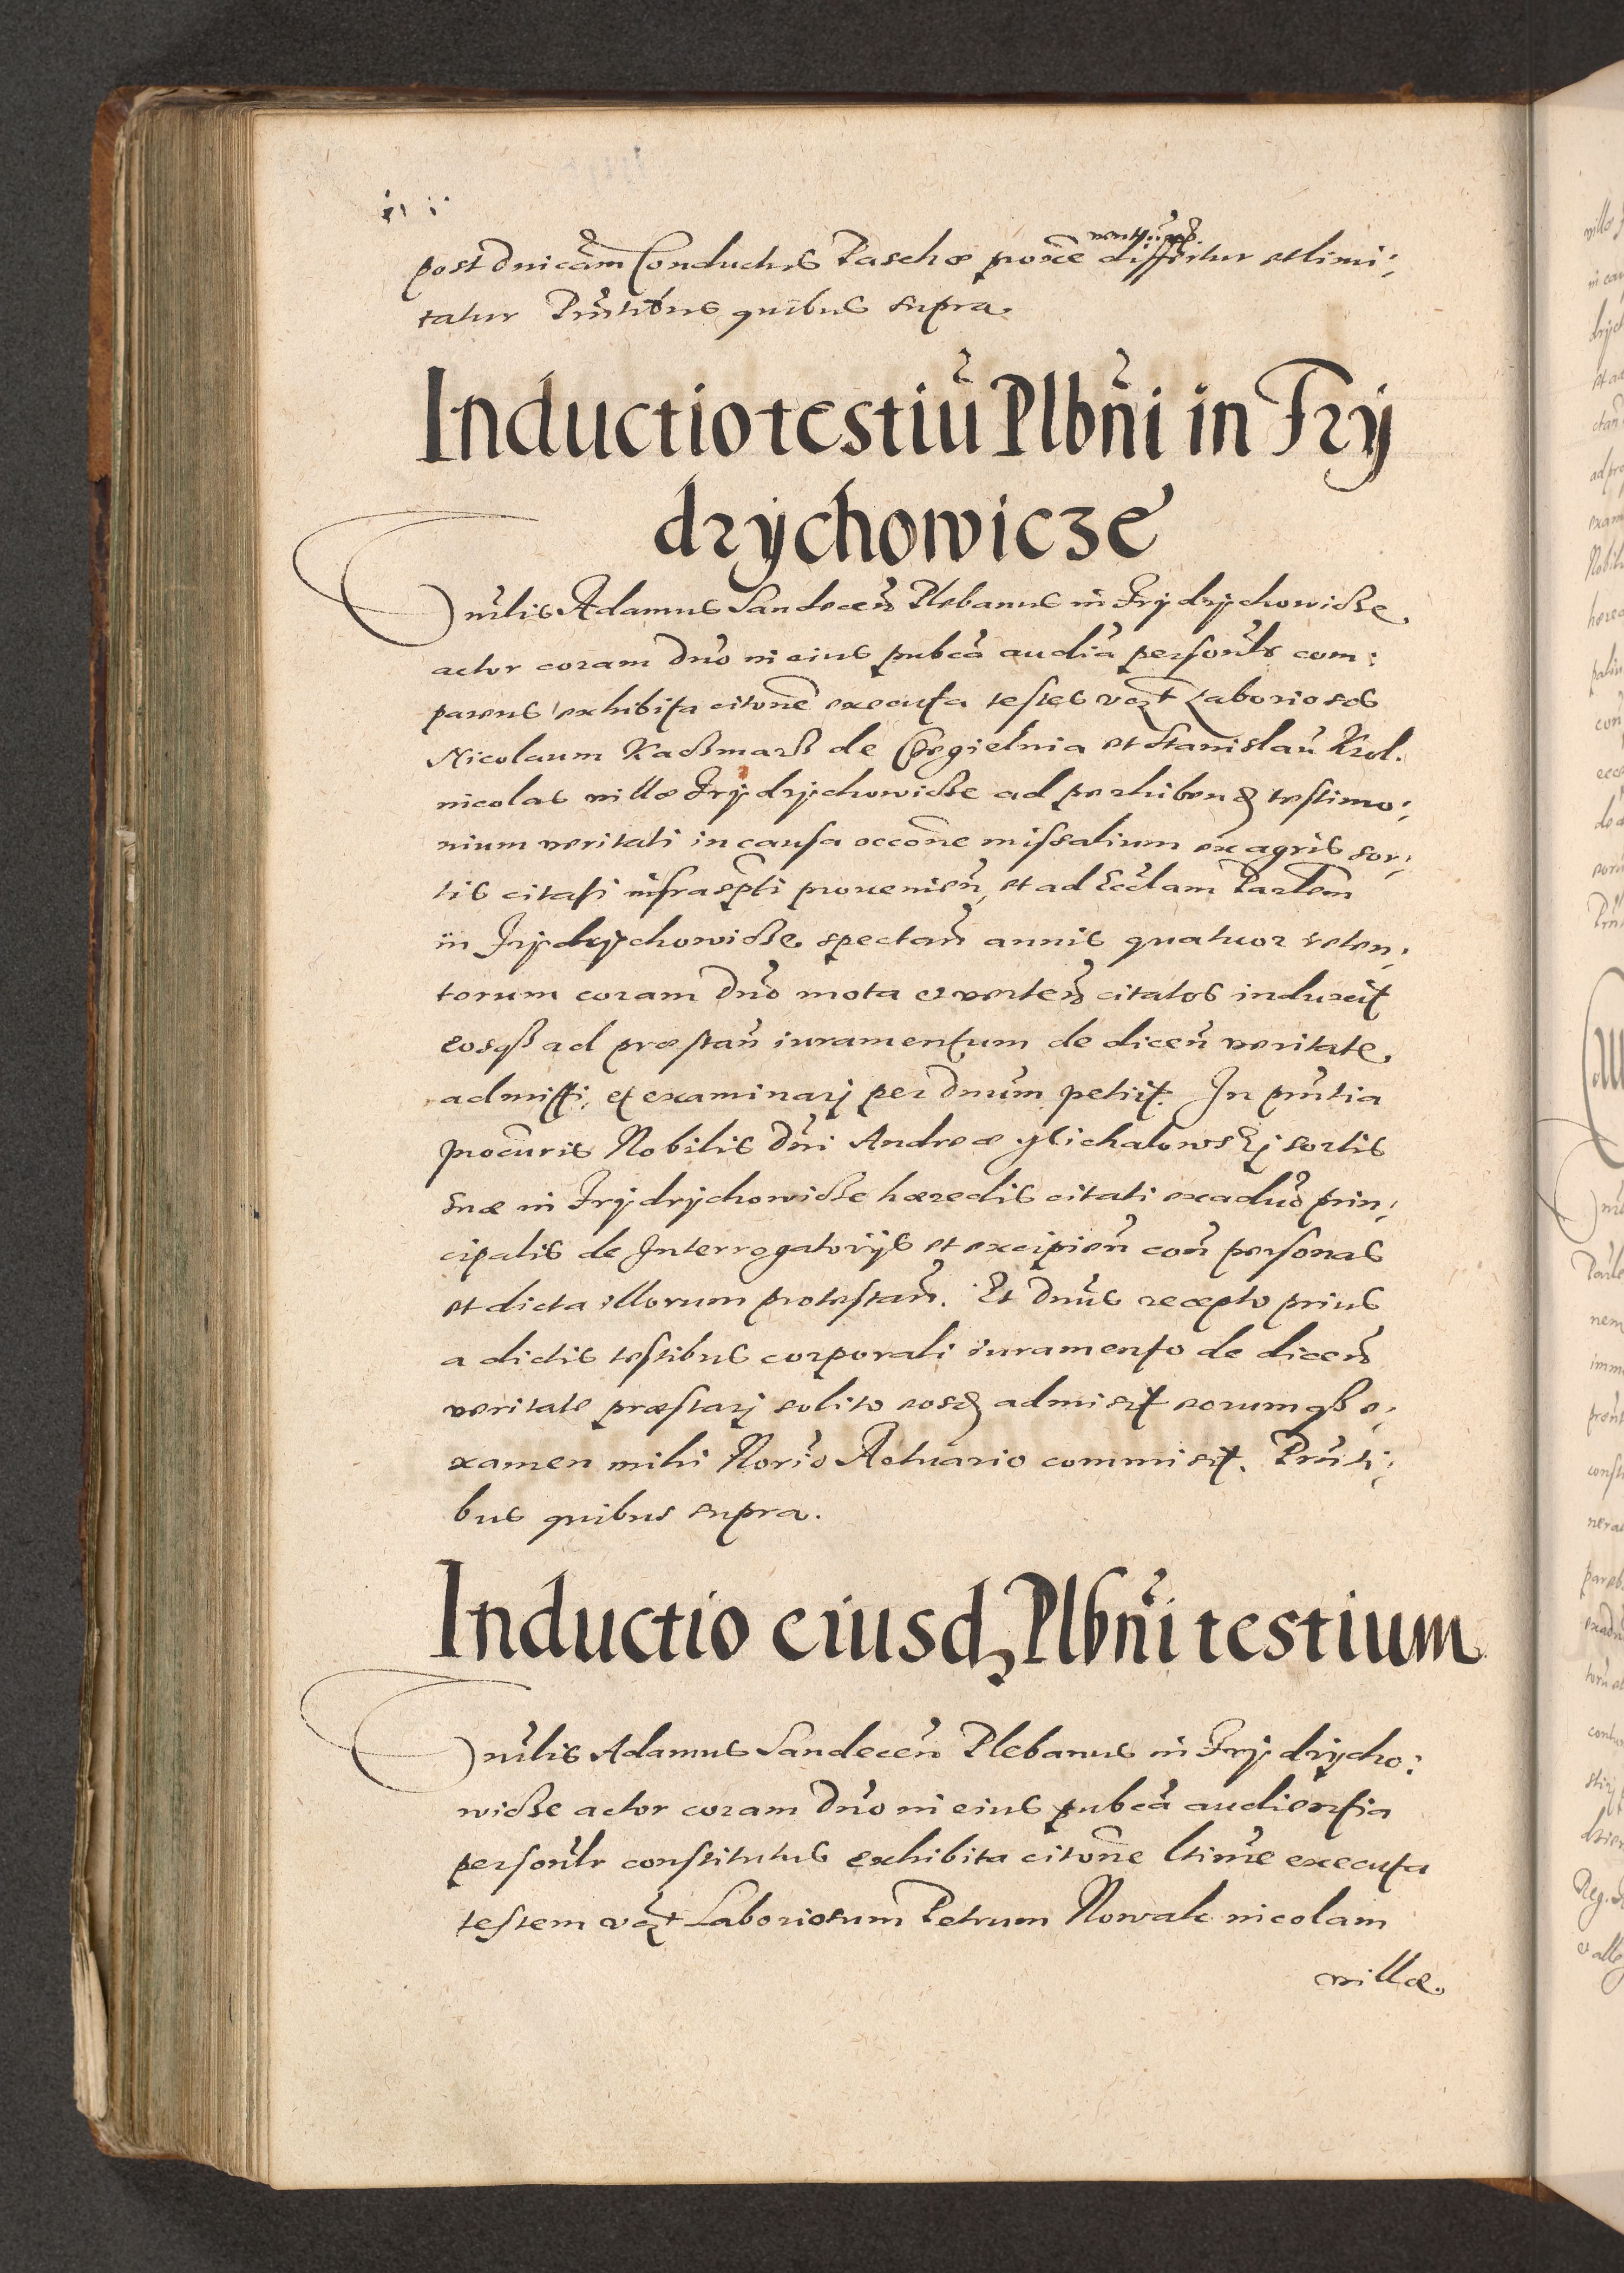 post dnicam Conductus Paschæ proxe venturã differtur et limi:
tatur Pñtibus quibus supra.
Inductio testiũ Plbñi in Fry
drychowicze
Dnũlis Adamus Sandeceñ Plebanus in Frydrychowicze
actor coram Dño in eius pubca audia personlr com:
parens exhibita citone executa testes vczt Laboriosos
Nicolaum Kaczmarz de Czegielnia et Stanislaũ Krol
incolas villæ Frydrychowicze ad perhibend testimo:
nium veritati in causa occone missalium ex agris sor:
tis citati infrascpti provenień, et ad Ecclam Parlem
in Frydrychowicze spectań annis quatuor reten:
torum coram Dño mota et verteń citatos induxit
eosqз ad præstań iuramentum de diceń veritate
admitti, et examinarj per Dnum petijt. In pñtia
procuris Nobilis Dñi Andreæ Michalowskj sortis
suæ in Frydrychowicze hæredis citati ex aduo prin:
cipalis de Interrogatorijs et excipień coń personas
et dicta illorum protestań. Et Dnus recepto prius
a dictis testibus corporali iuramento de diceń
veritate præstarj solito eosd admisit eorumqз e:
xamen mihi Norio Actuario commisit. Pñti:
bus quibus supra.
Inductio eiusdз Plbñi testium
Dnũlis Adamus Sandeceń Plebanus in Frydrycho:
wicze actor coram Dño in eius pubca audientia
personlr constitutus exhibita citone ltime executa
testem vczt Laboriosum Petrum Nowak incolam
villæ.